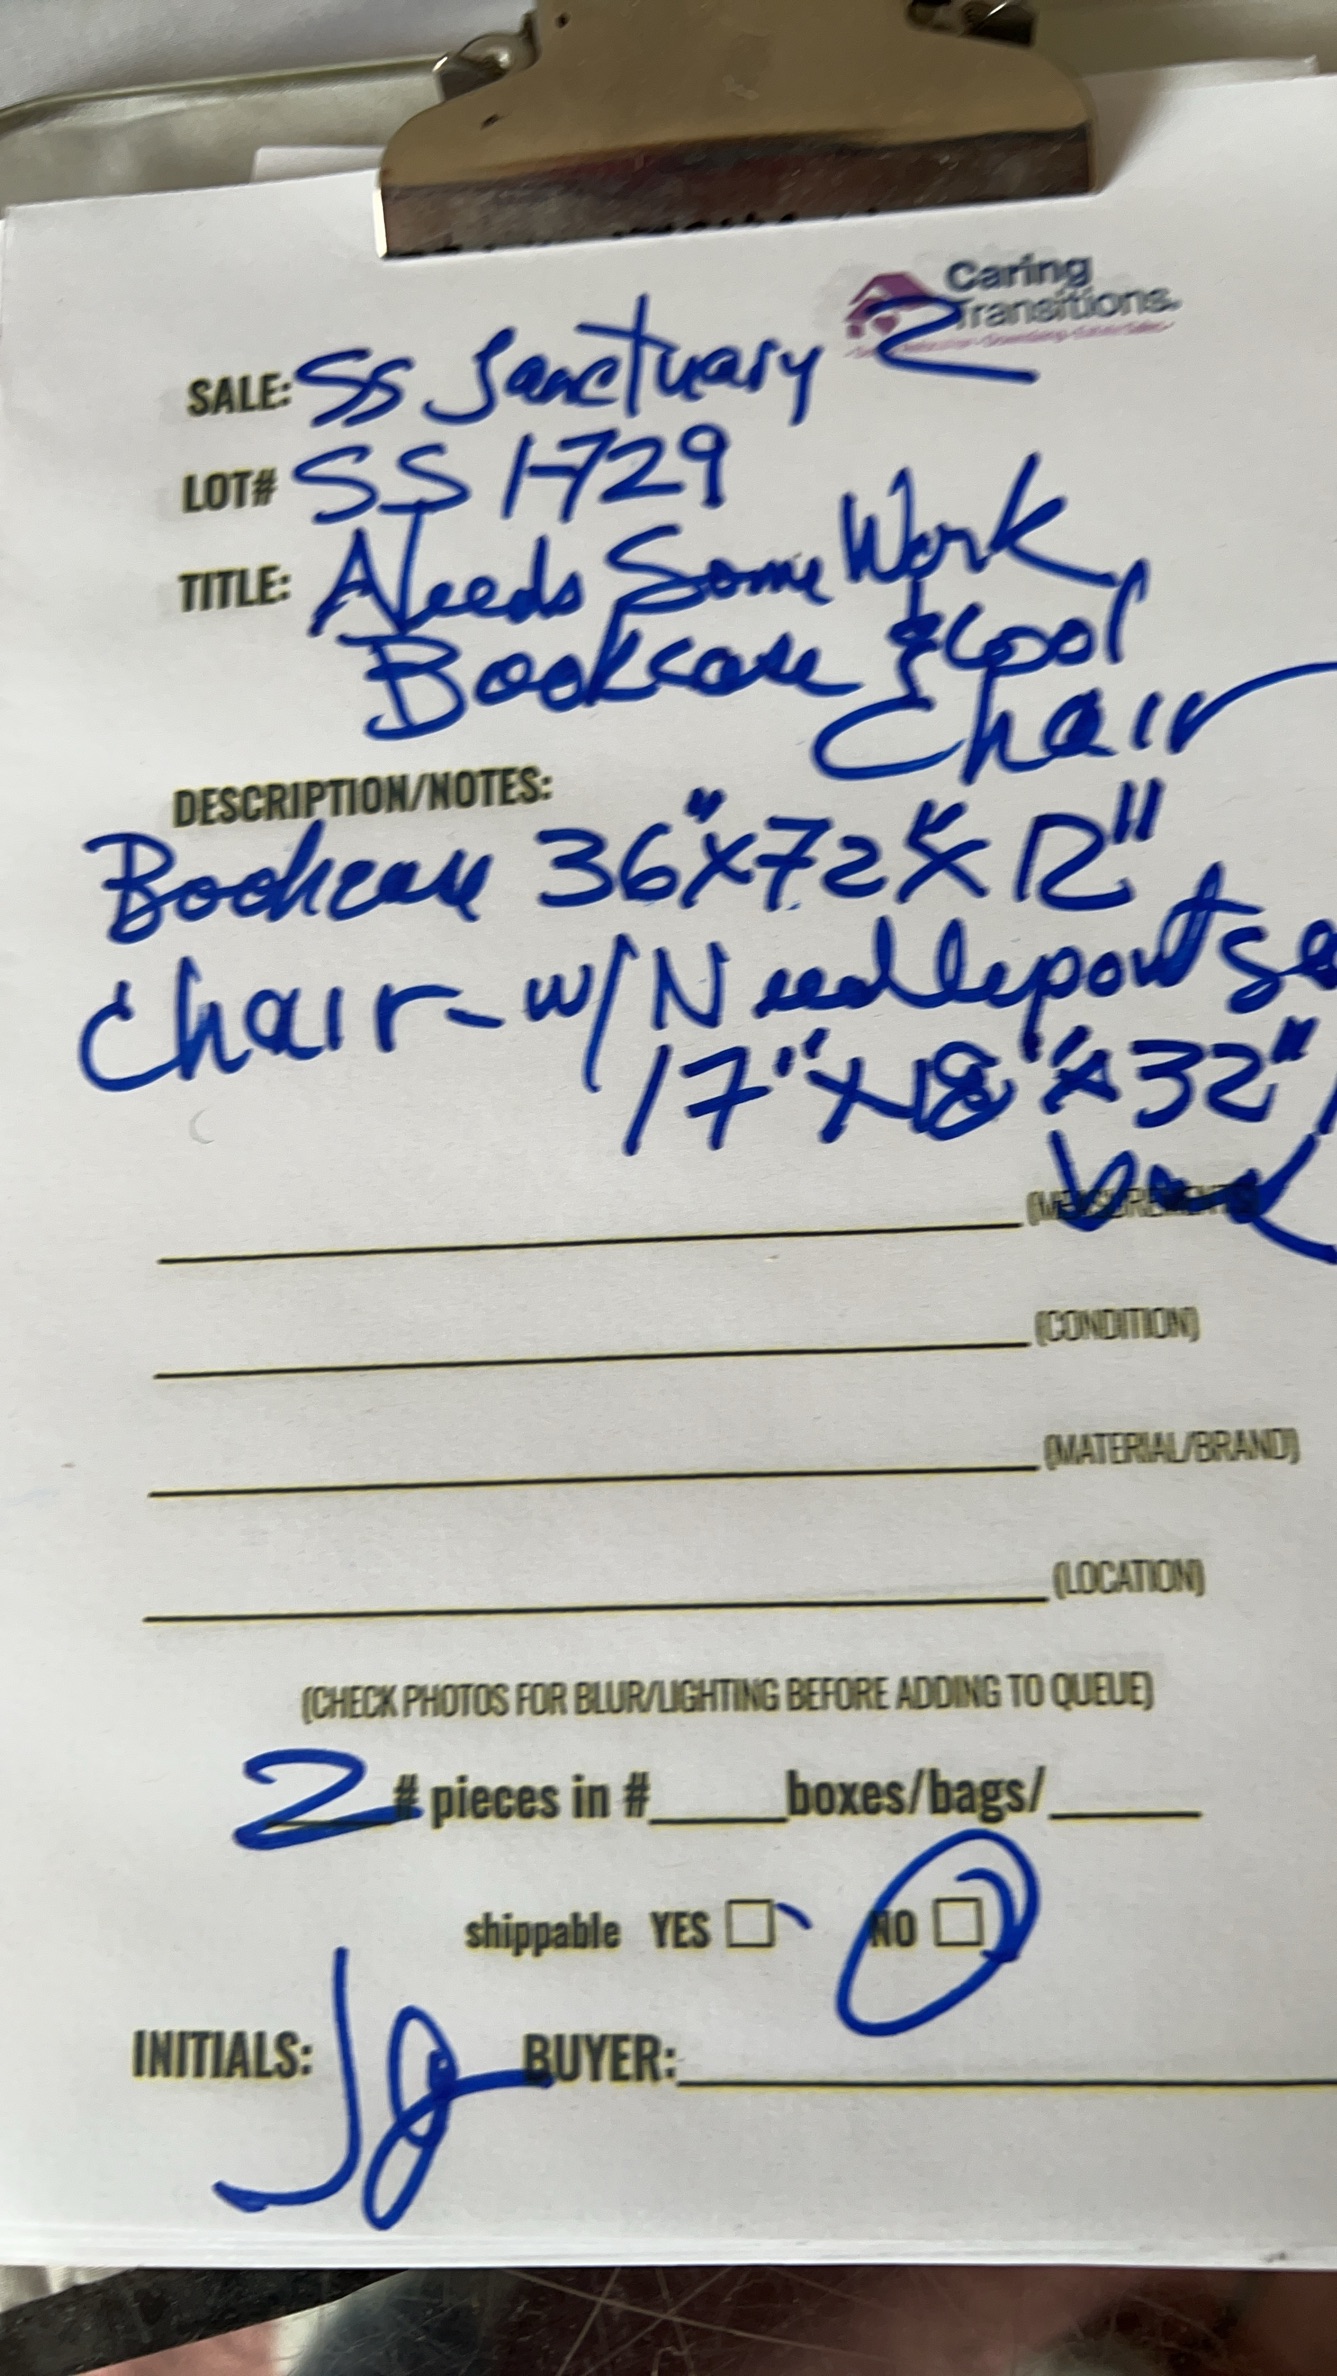 Caring
Transitions.
SALE: SS Sanctuary 2
LOT# SS 1-729
TITLE: Needs Some Work,
Bookcase & Cool
Chair
DESCRIPTION/NOTES:
Bookcase 36" x 72" x 12"
Chair - w/ Needlepoint Se
17" x 18" x 32"
(MEASUREMENTS)
(CONDITION)
(MATERIAL/BRAND)
(LOCATION)
(CHECK PHOTOS FOR BLUR/LIGHTING BEFORE ADDING TO QUEUE)
2 # pieces in #____boxes/bags/____
shippable YES NO
INITIALS: BUYER: